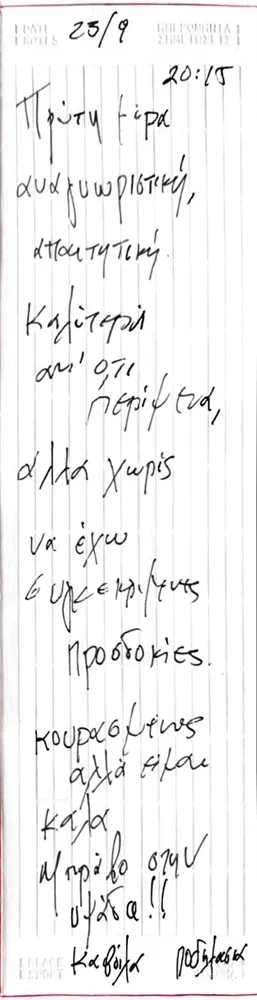 DATE
NOTES
23/9
ΗΜΕΡΟΜΗΝΙΑ
ΣΗΜΕΙΩΣΕΙΣ
20:15
Πρώτη μέρα
αναγνωριστική,
απαιτητική.
Καλύτερα
απ' ότι
περίμενα,
αλλά χωρίς
να έχω
συγκεκριμένες
προσδοκίες.
κουρασμένος
αλλά είμαι
καλά
Μπράβο στην
ομάδα!!
Καβάλα ποδηλασία